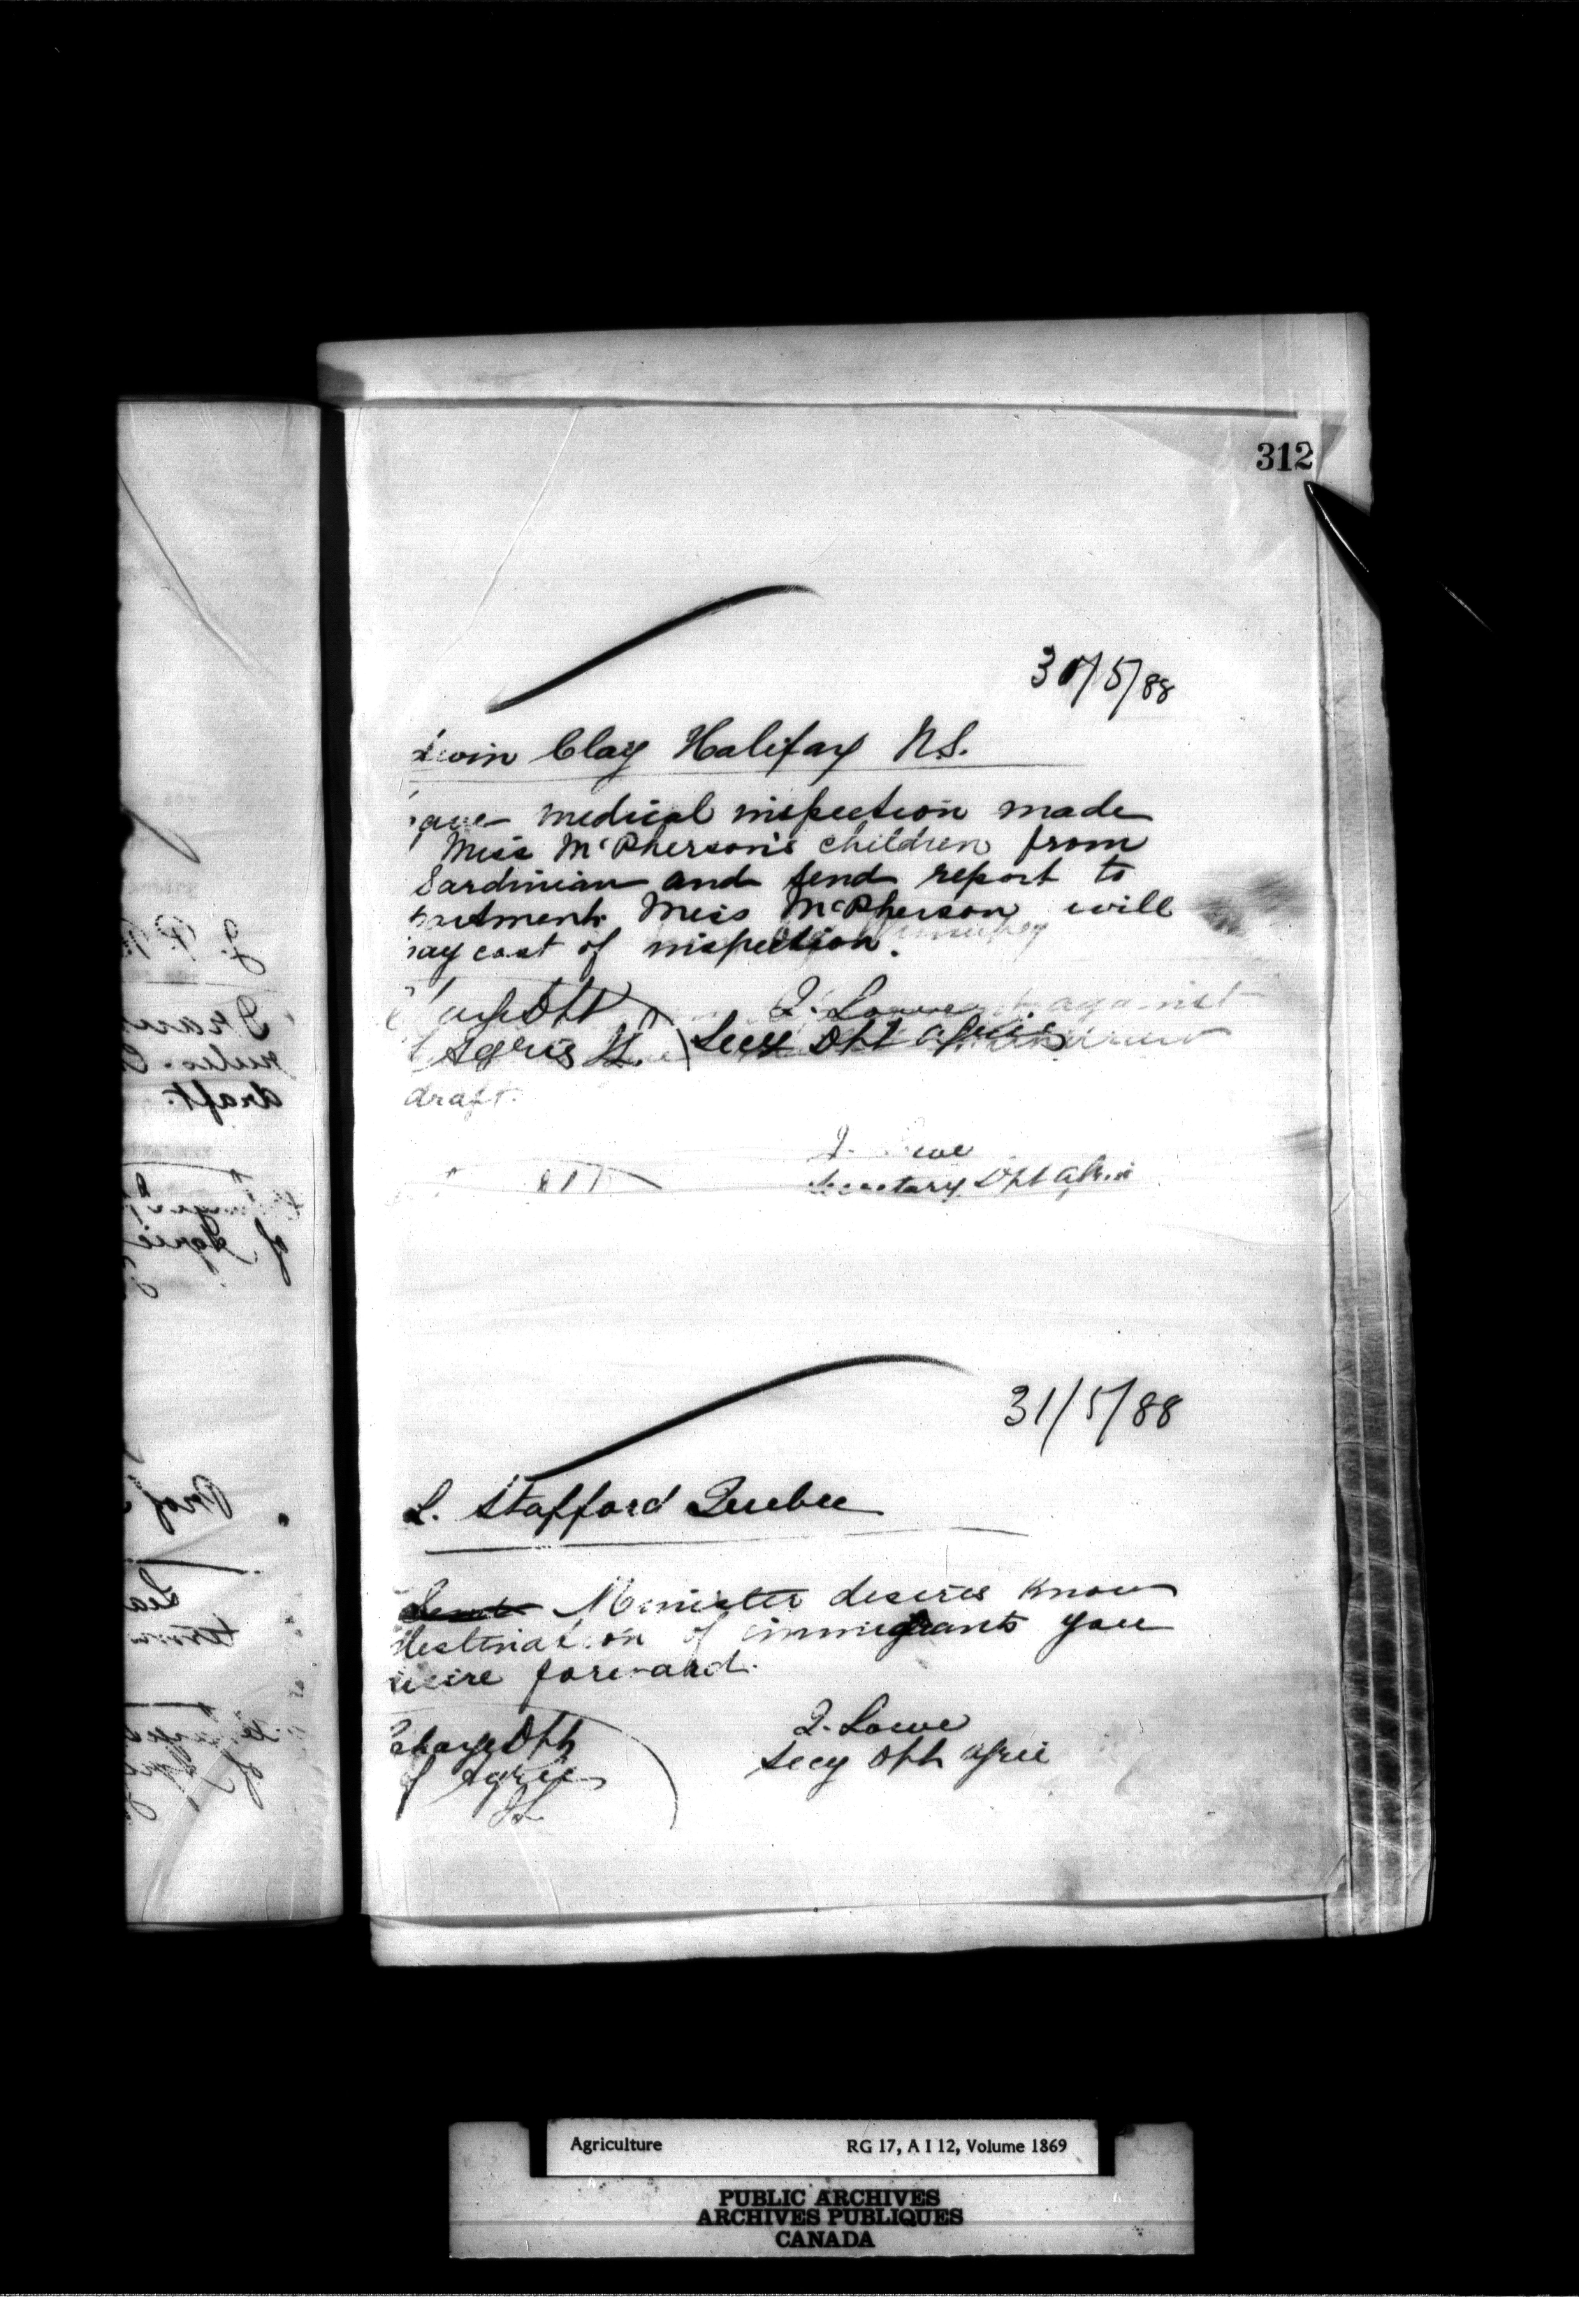 312
30/5/88
dwin Clay Halifax N.S.
ave medical inspection made
Miss McPherson's children from
Sardinian and send report to
artment. Miss McPherson will
pay cost of inspection.
Winnipeg
J. Lowe
against
Secy Dpt Agric
Agric JL.
draft.
J. Lowe
Secretary Dpt Agric
31/5/88
L. Stafford Quebec
Minister desires know
destination of immigrants you
wire forward.
Charge Dpt
of Agric
JL
J. Lowe
Secy Dpt Agric
draft.
of Agric
Prof
Agriculture RG 17, A I 12, Volume 1869
PUBLIC ARCHIVES
ARCHIVES PUBLIQUES
CANADA